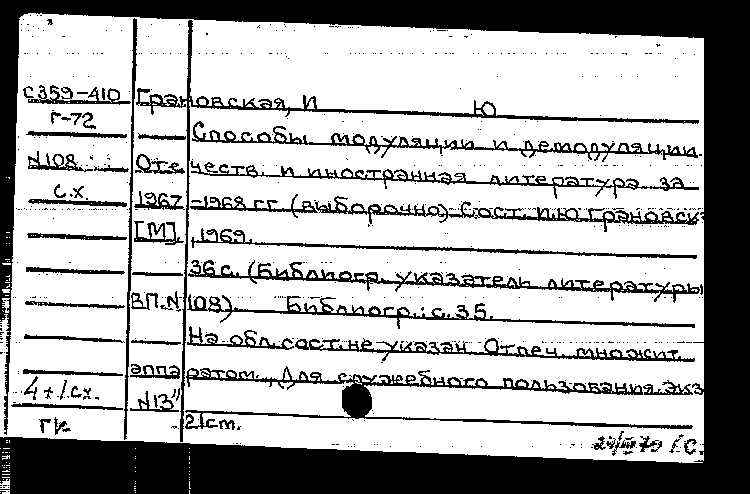 С359-410 Грановская, И Ю
Г-72 Способы модуляции и демодуляции.
N108 Отечеств. и иностранная литература за
с.х. 1967-1968 гг (выборочно) Сост. И.Ю. Грановск
[М]., 1969.
36 с. (Библиогр. указатели литературы
ВП. N 108). Библиогр.: с. 35.
На обл. сост. не указан. Отпеч. множит.
аппаратом., Для служебного пользования. Экз
4+1с.х. N13"
ГК 21cm.